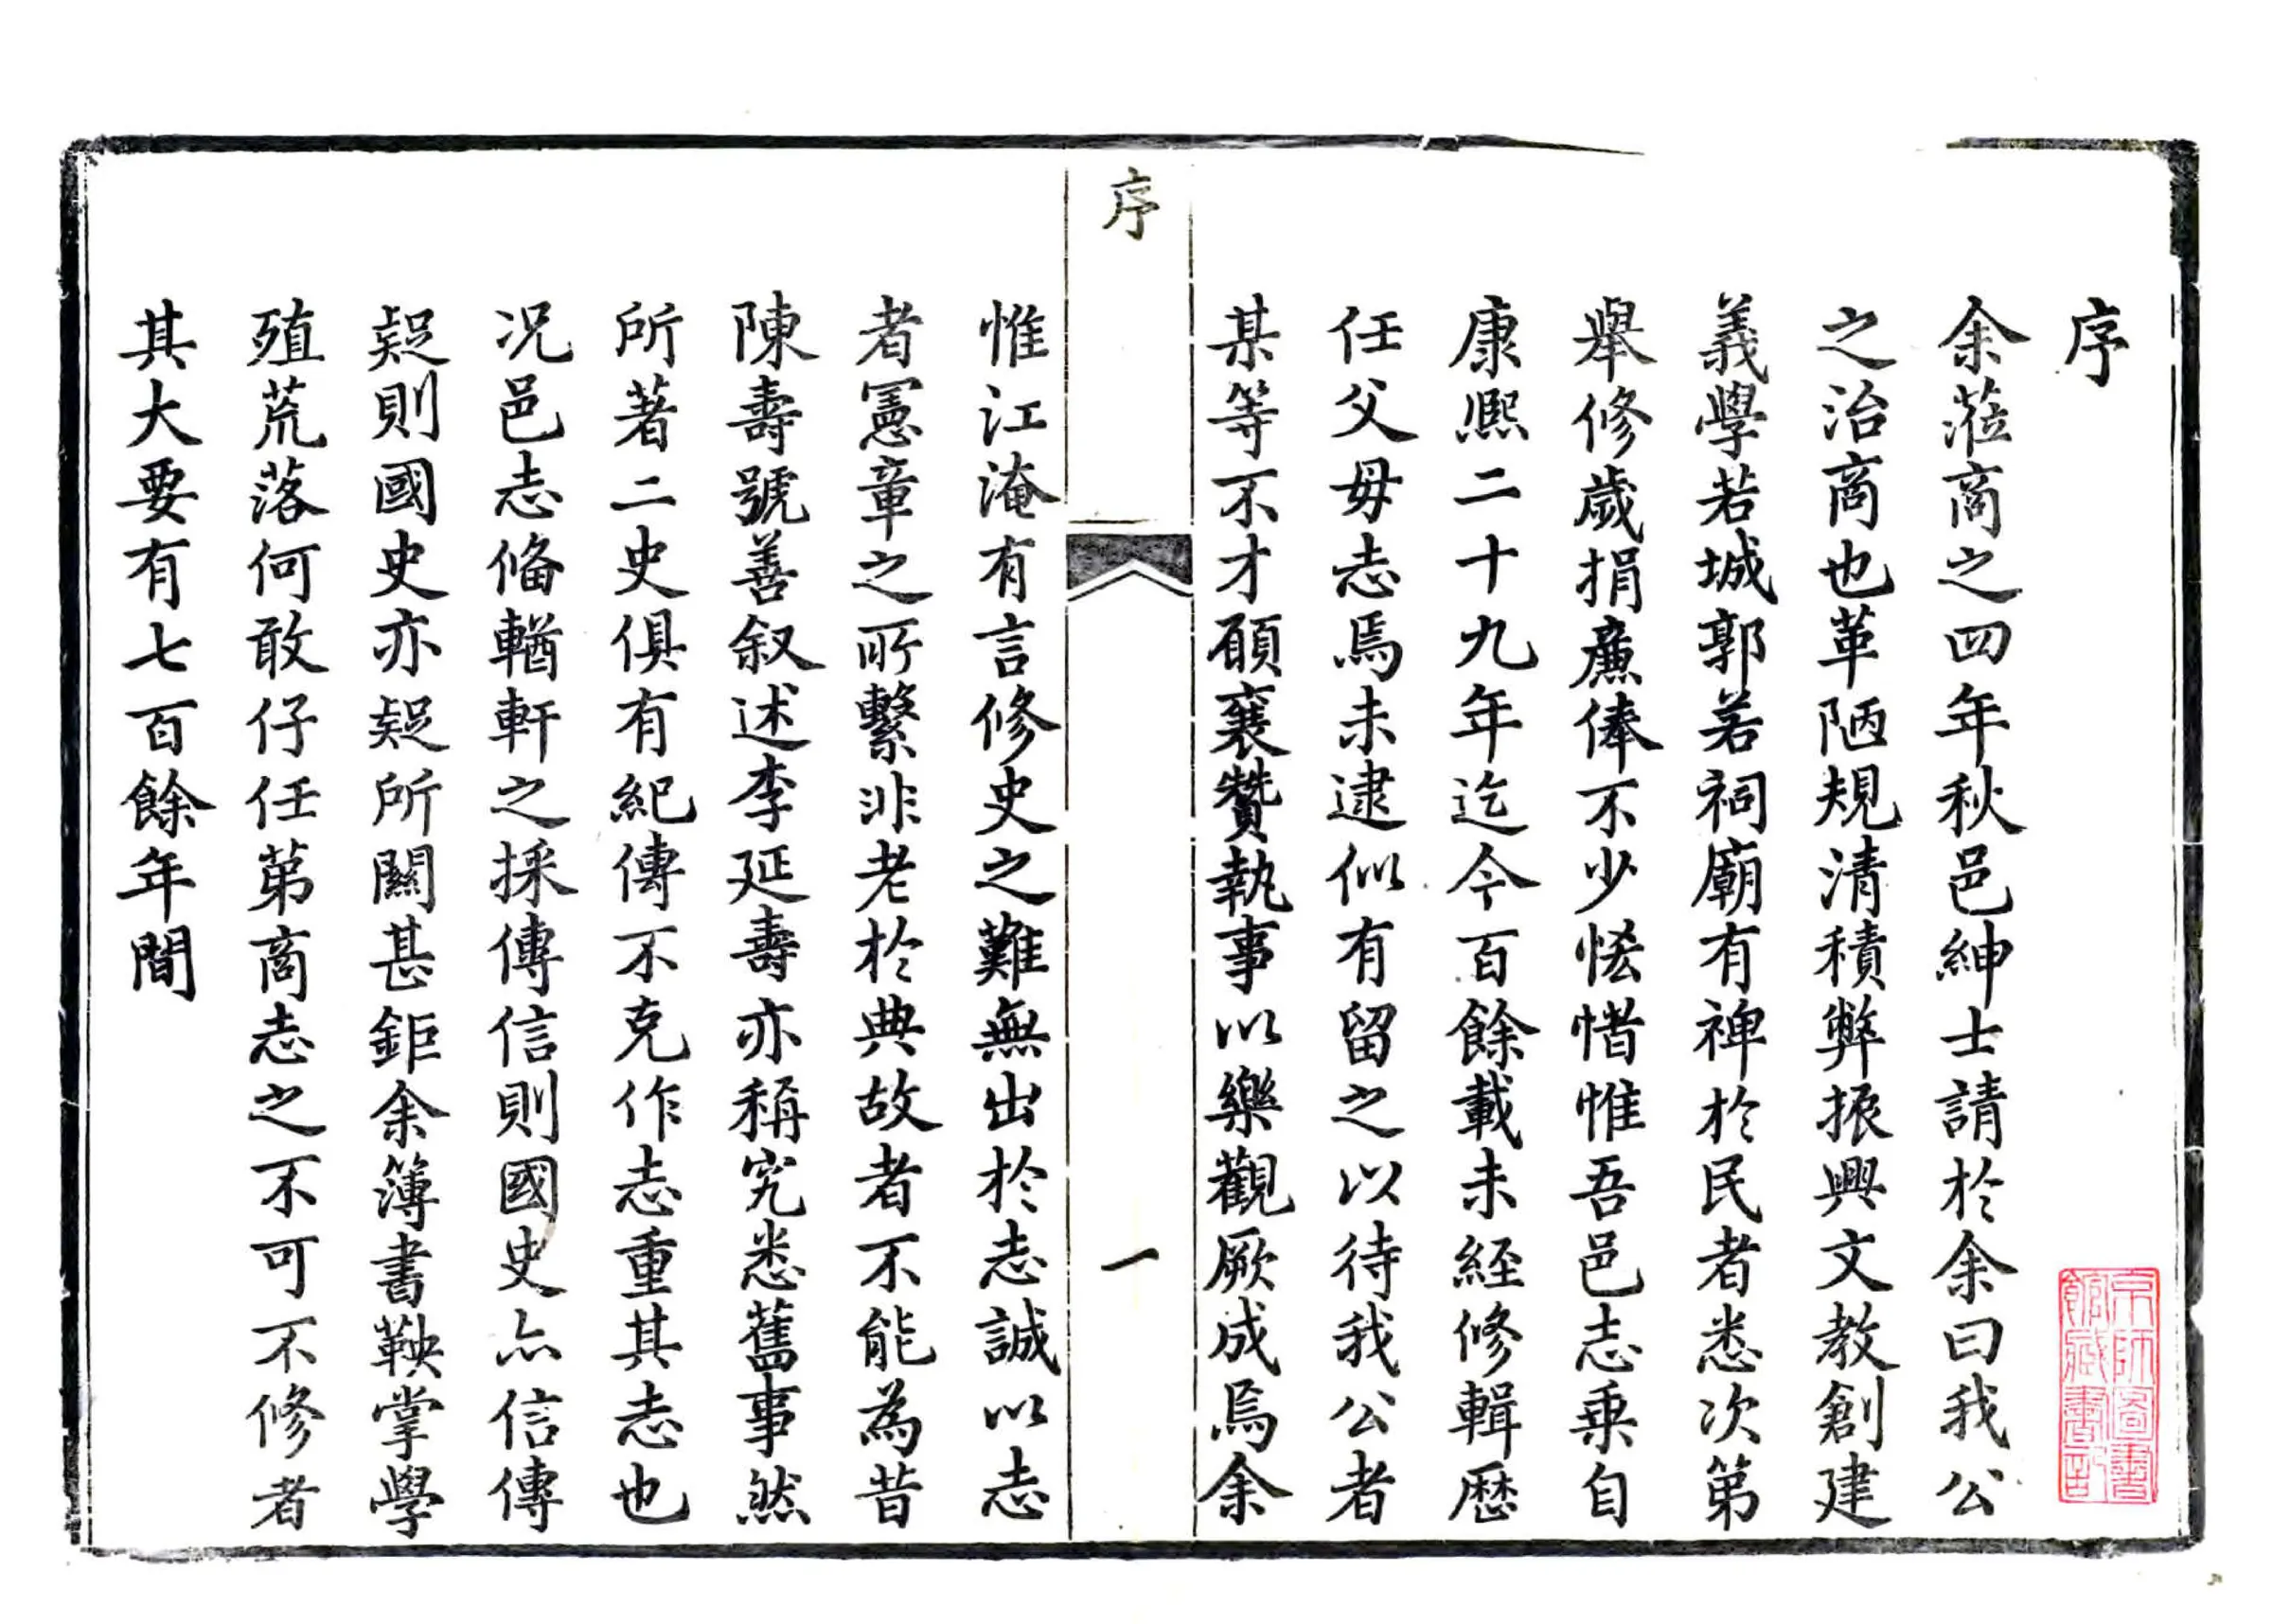 序
余蒞商之四年秋邑紳士請於余曰我公
之治商也革陋規清積弊振興文教創建
義學若城郭若祠廟有裨於民者悉次第
舉修歲捐廉俸不少恡惜惟吾邑志乘自
康熙二十九年迄今百餘載未経修輯歷
任父毋志焉未逮似有留之以待我公者
某等不才願襄贊執事以樂觀厥成焉余
序
一
惟江淹有言修史之難無出於志誠以志
者憲章之所繫非老於典故者不能為昔
陳壽號善叙述李延壽亦稱究悉舊事然
所著二史俱有紀傳不克作志重其志也
况邑志俻輶軒之採傳信則國史亦信傳
疑則國史亦疑所關甚鉅余簿書鞅掌學
殖荒落何敢仔任苐商志之不可不修者
其大要有七百餘年間
京師圖書
館藏書記